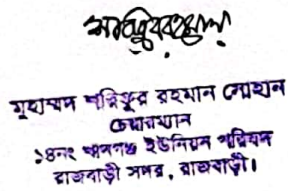 মুহাম্মদ শফিকুর রহমান সোহান
চেয়ারম্যান
১৪নং খানগঞ্জ ইউনিয়ন পরিষদ
রাজবাড়ী সদর, রাজবাড়ী।